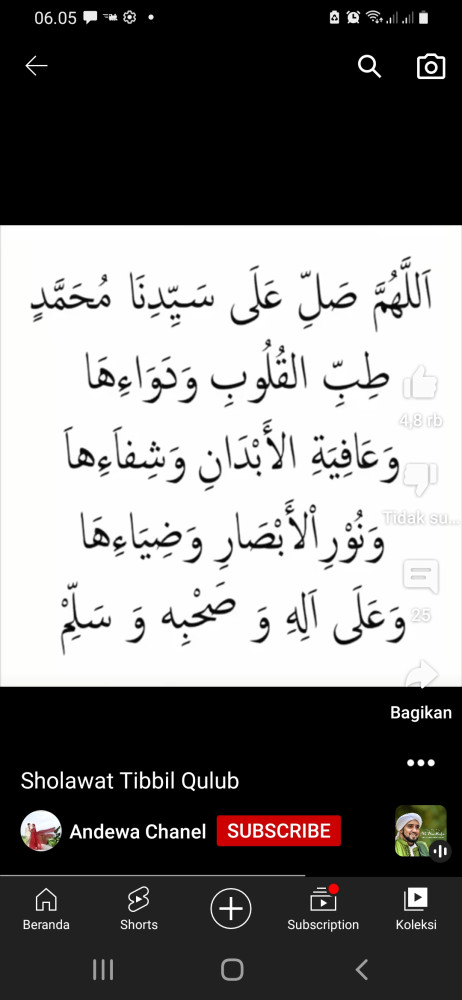 06.05
اَللَّهُمَّ صَلِّ عَلَى سَيِّدِنَا مُحَمَّدٍ
طِبِّ القُلُوبِ وَدَوَاءِهَا
وَعَافِيَةِ الأَبْدَانِ وَشِفَاءِهاَ
وَنُوْرِ اْلأَبْصَارِ وَضِيَاءِهَا
وَعَلَى اَلِهِ وَ صَحْبِه وَ سَلِّمْ
4,8 rb
Tidak su...
25
Bagikan
Sholawat Tibbil Qulub
Andewa Chanel SUBSCRIBE
Beranda Shorts Subscription Koleksi